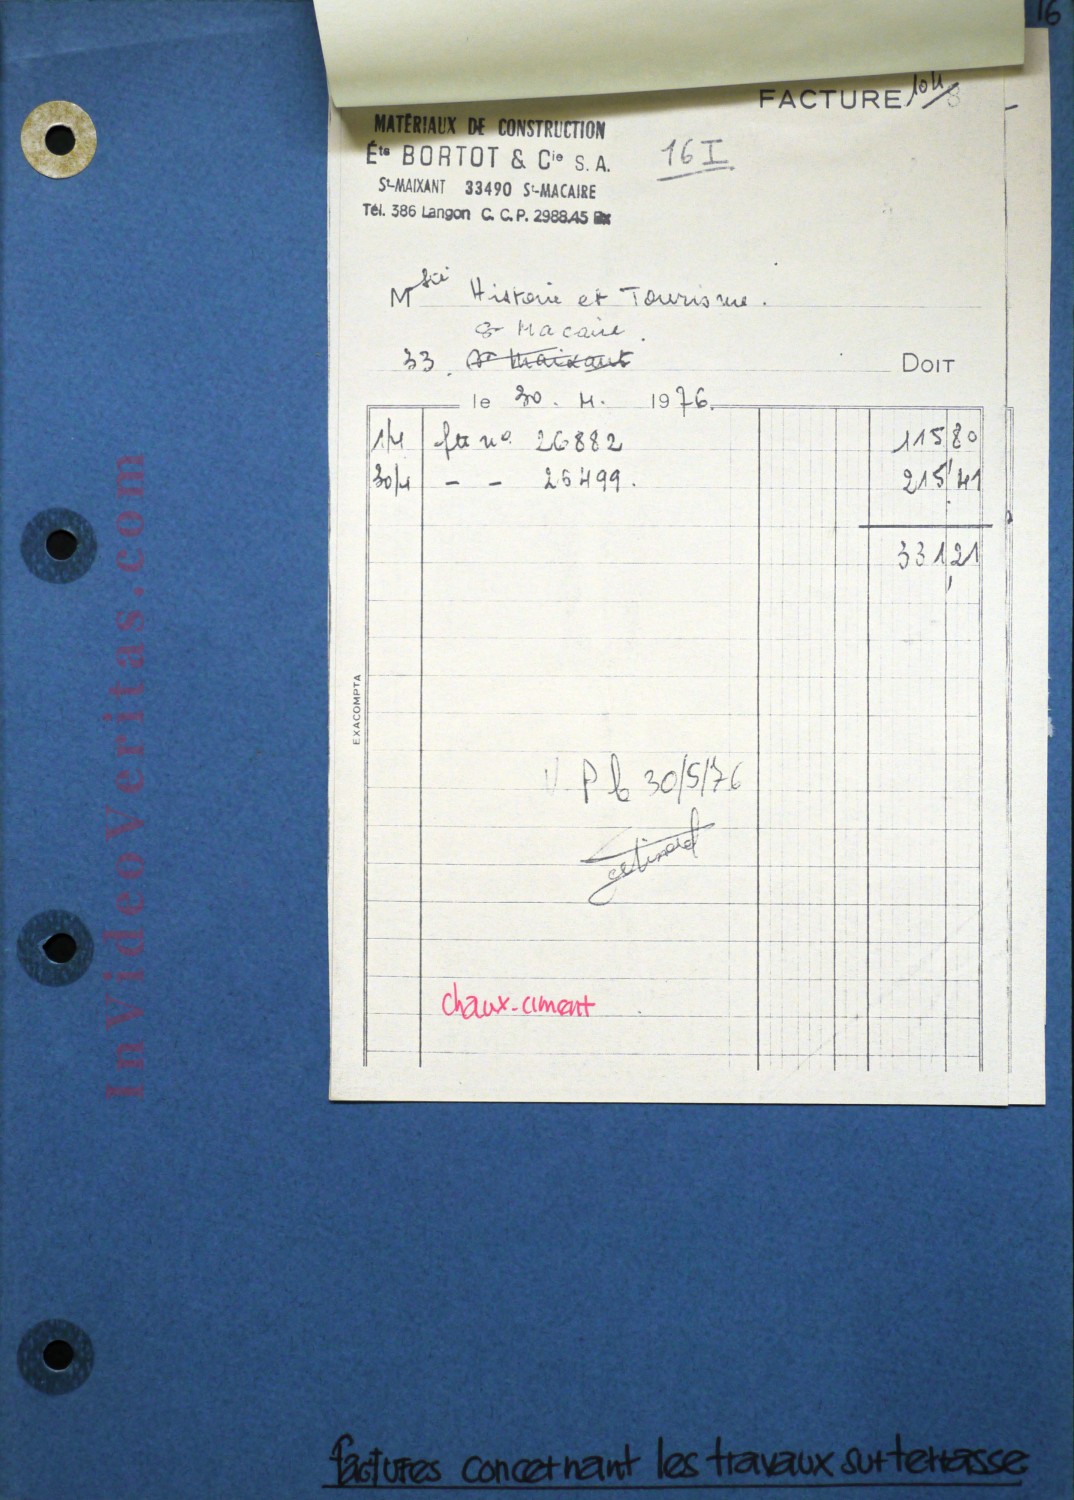 16
FACTURE 104/8
MATÉRIAUX DE CONSTRUCTION
Éts BORTOT & Cie S. A.
St-MAIXANT 33490 St-MACAIRE
Tél. 386 Langon C. C. P. 2988.45 Bx
16 I
M Sci Histoire et Tourisme.
St Macaire.
33. St Maixant DOIT
le 30. 4. 1976.
1/4 fre no 26882 115 80
30/4 - - 26499. 215, 41
331, 21
EXACOMPTA
P b 30/5/76
chaux-ciment
InVideoVeritas.com
factures concernant les travaux sur terrasse